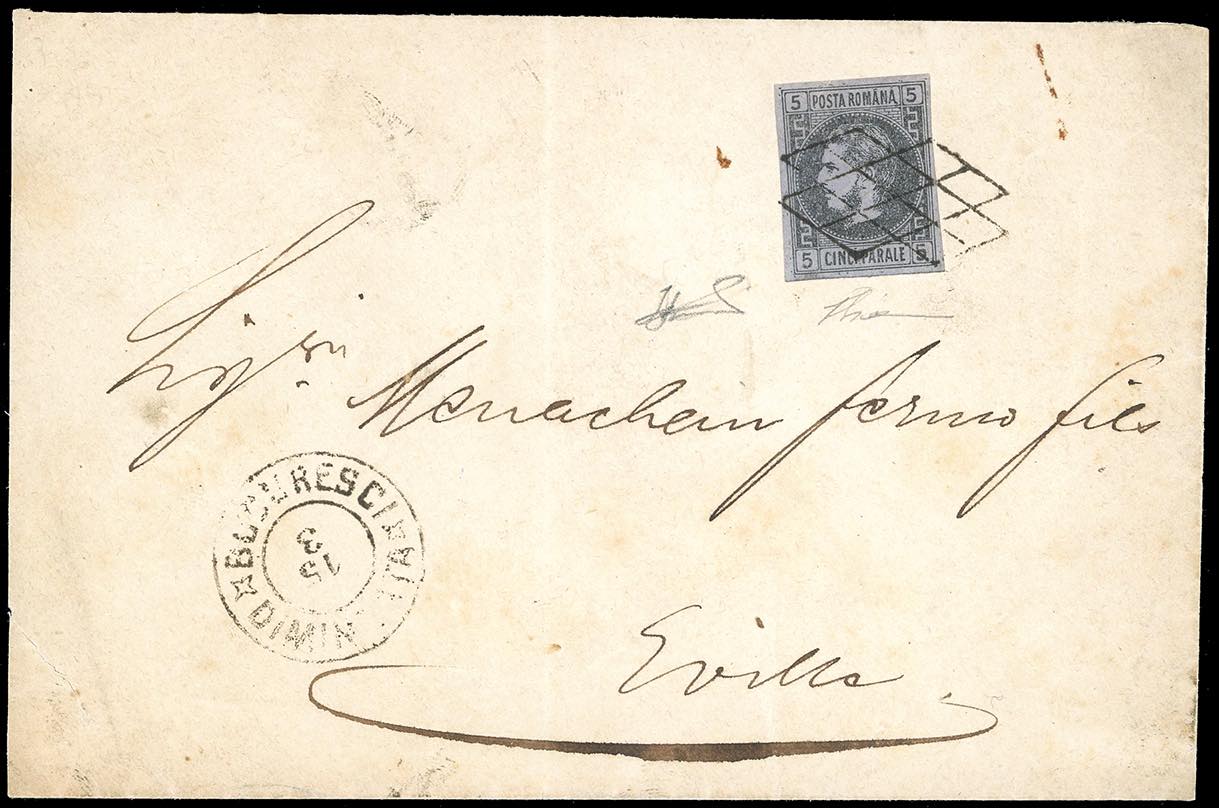 5 POSTA ROMÂNA 5
5 CINCI PARALE 5
Sigrn Menachem fermo fils
BUCURESCI
15
3
DIMIN
Eville